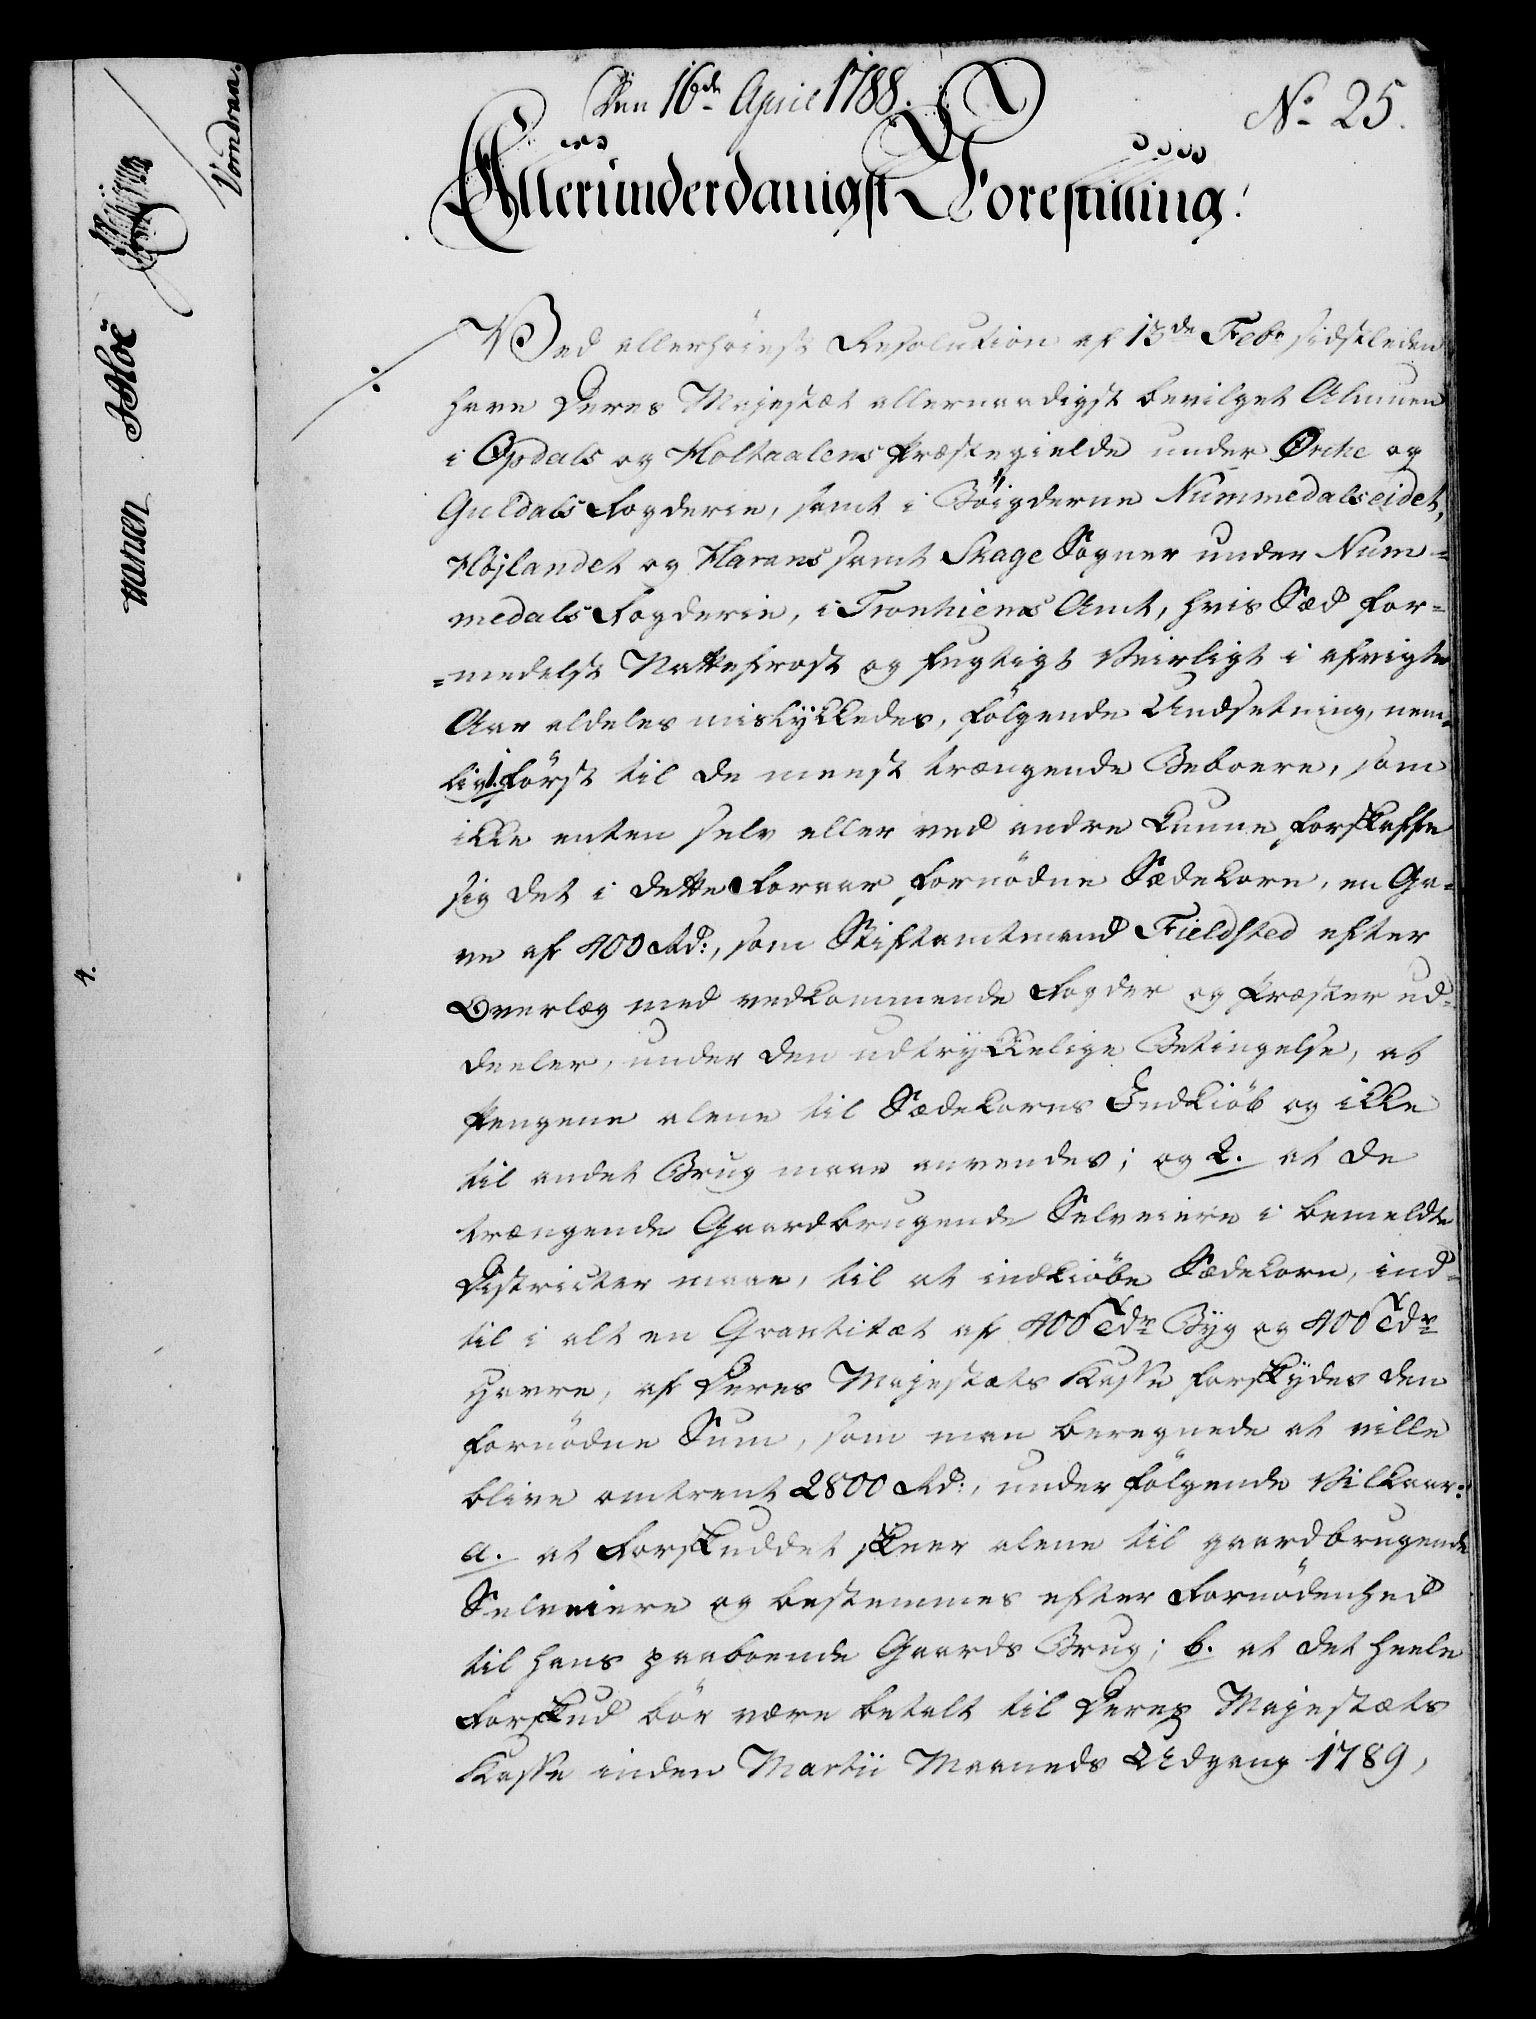 Den 16de April 1788.
No 25.
Allerunderdanigst Forestilling!
Ved allerhöiest Resolution af 13de Febr sidstleden
have Deres Majestæt allernaadigst bevilget Almuen
i Opdals og Holtaalens Præstegielde under Orcke og
Guldals Fogderie, samt i Böigderne Nummedalseidet,
Höjlandet og Harans samt Skage Sogner under Num-
medals Fogderie, i Tronhiems Amt, hvis Sæd for-
=medelst Nattefrost og fugtigt Veirligt i afvigte
Aar aldeles mislykkedes, fölgende Undsetning, nem-
lig 1. först til de meest trængende Beboere, som
ikke enten selv eller ved andre kunne forskaffe
sig det i dette Foraar fornödne Sædekorn, en Ga-
ve af 400 Rd:, som Stiftamtmand Fieldsted efter
Overlæg med vedkommende Fogder og Præster ud-
deeler, under den udtrykkelige Betingelse, at
Pengene alene til Sædekorns Indkiöb og ikke
til andet Brug maae anvendes; og 2. at de
trængende Gaardbrugende Selveiere i bemeldte
Districter maae, til at indkiöbe Sædekorn, ind-
til i alt en Qvantitæt af 400 Tdr Byg og 400 Tdr
Havre, af Deres Majestæts Kasse forskydes den
fornödne Sum, som man beregnede at ville
blive omtrent 2800 Rd:, under fölgende Vilkaar:
a. at Forskuddet skeer alene til gaardbrugende
Selveiere og bestemmes efter Fornödenhed
til hans paaboende Gaards Brug; b. at det heele
Forskud bör være betalt til Deres Majestæts
Kasse inden Martii Maaneds Udgang 1789,
Vondraa.
4.